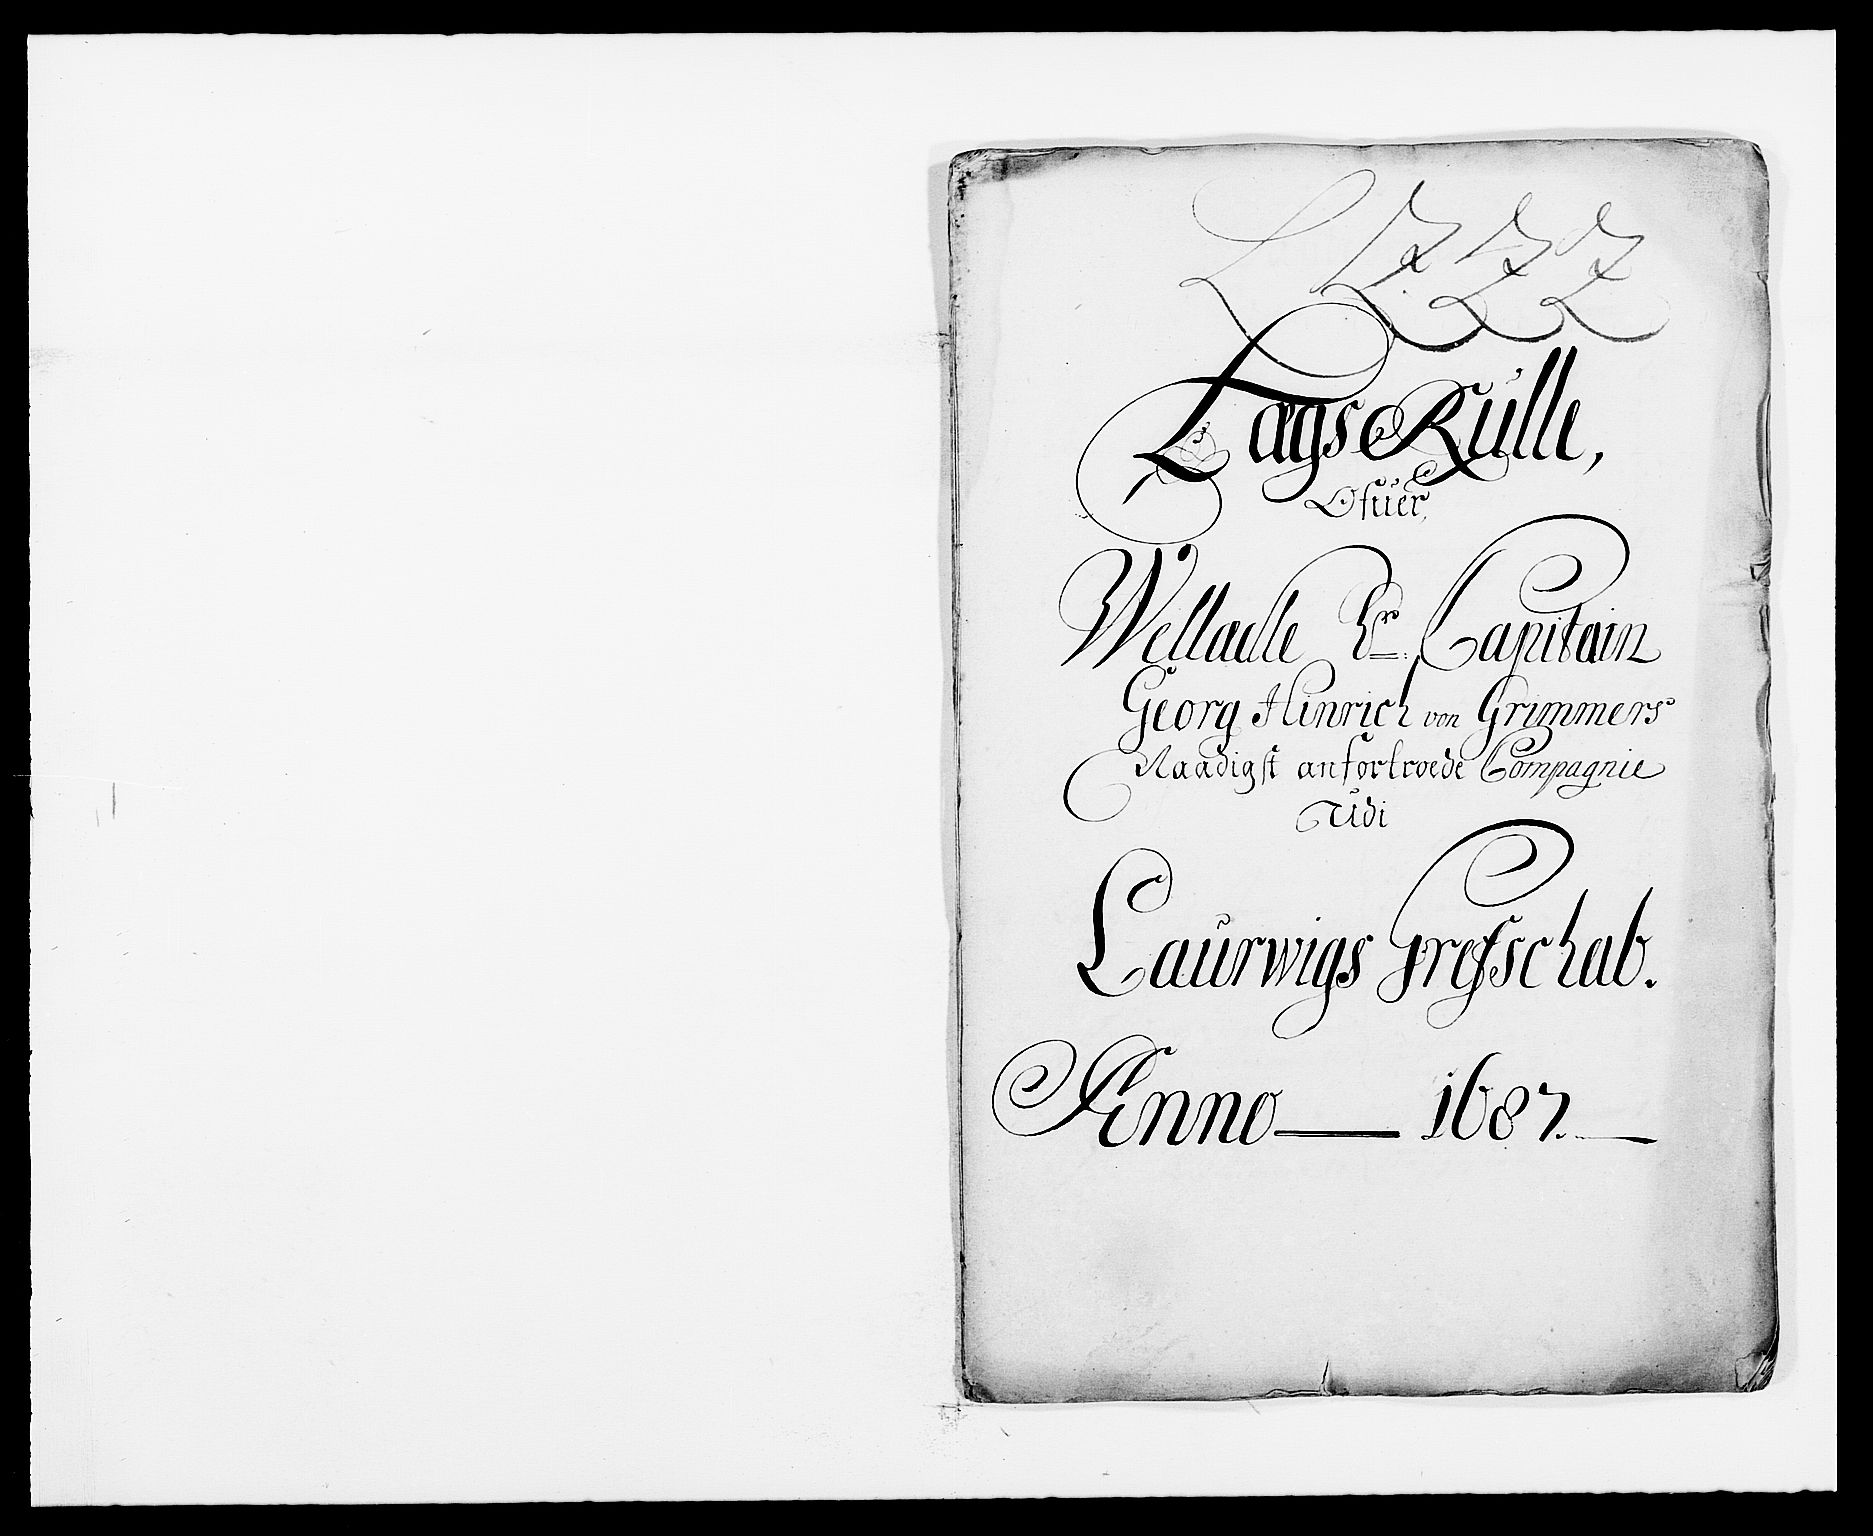 Lægs Rulle,
Ofuer
Welladle hr. Capitain
Georg Hinrich von Grimmers
Naadigst anfortroede Compagnie
Udi
Laurwigs Grefschab.
Anno 1687.